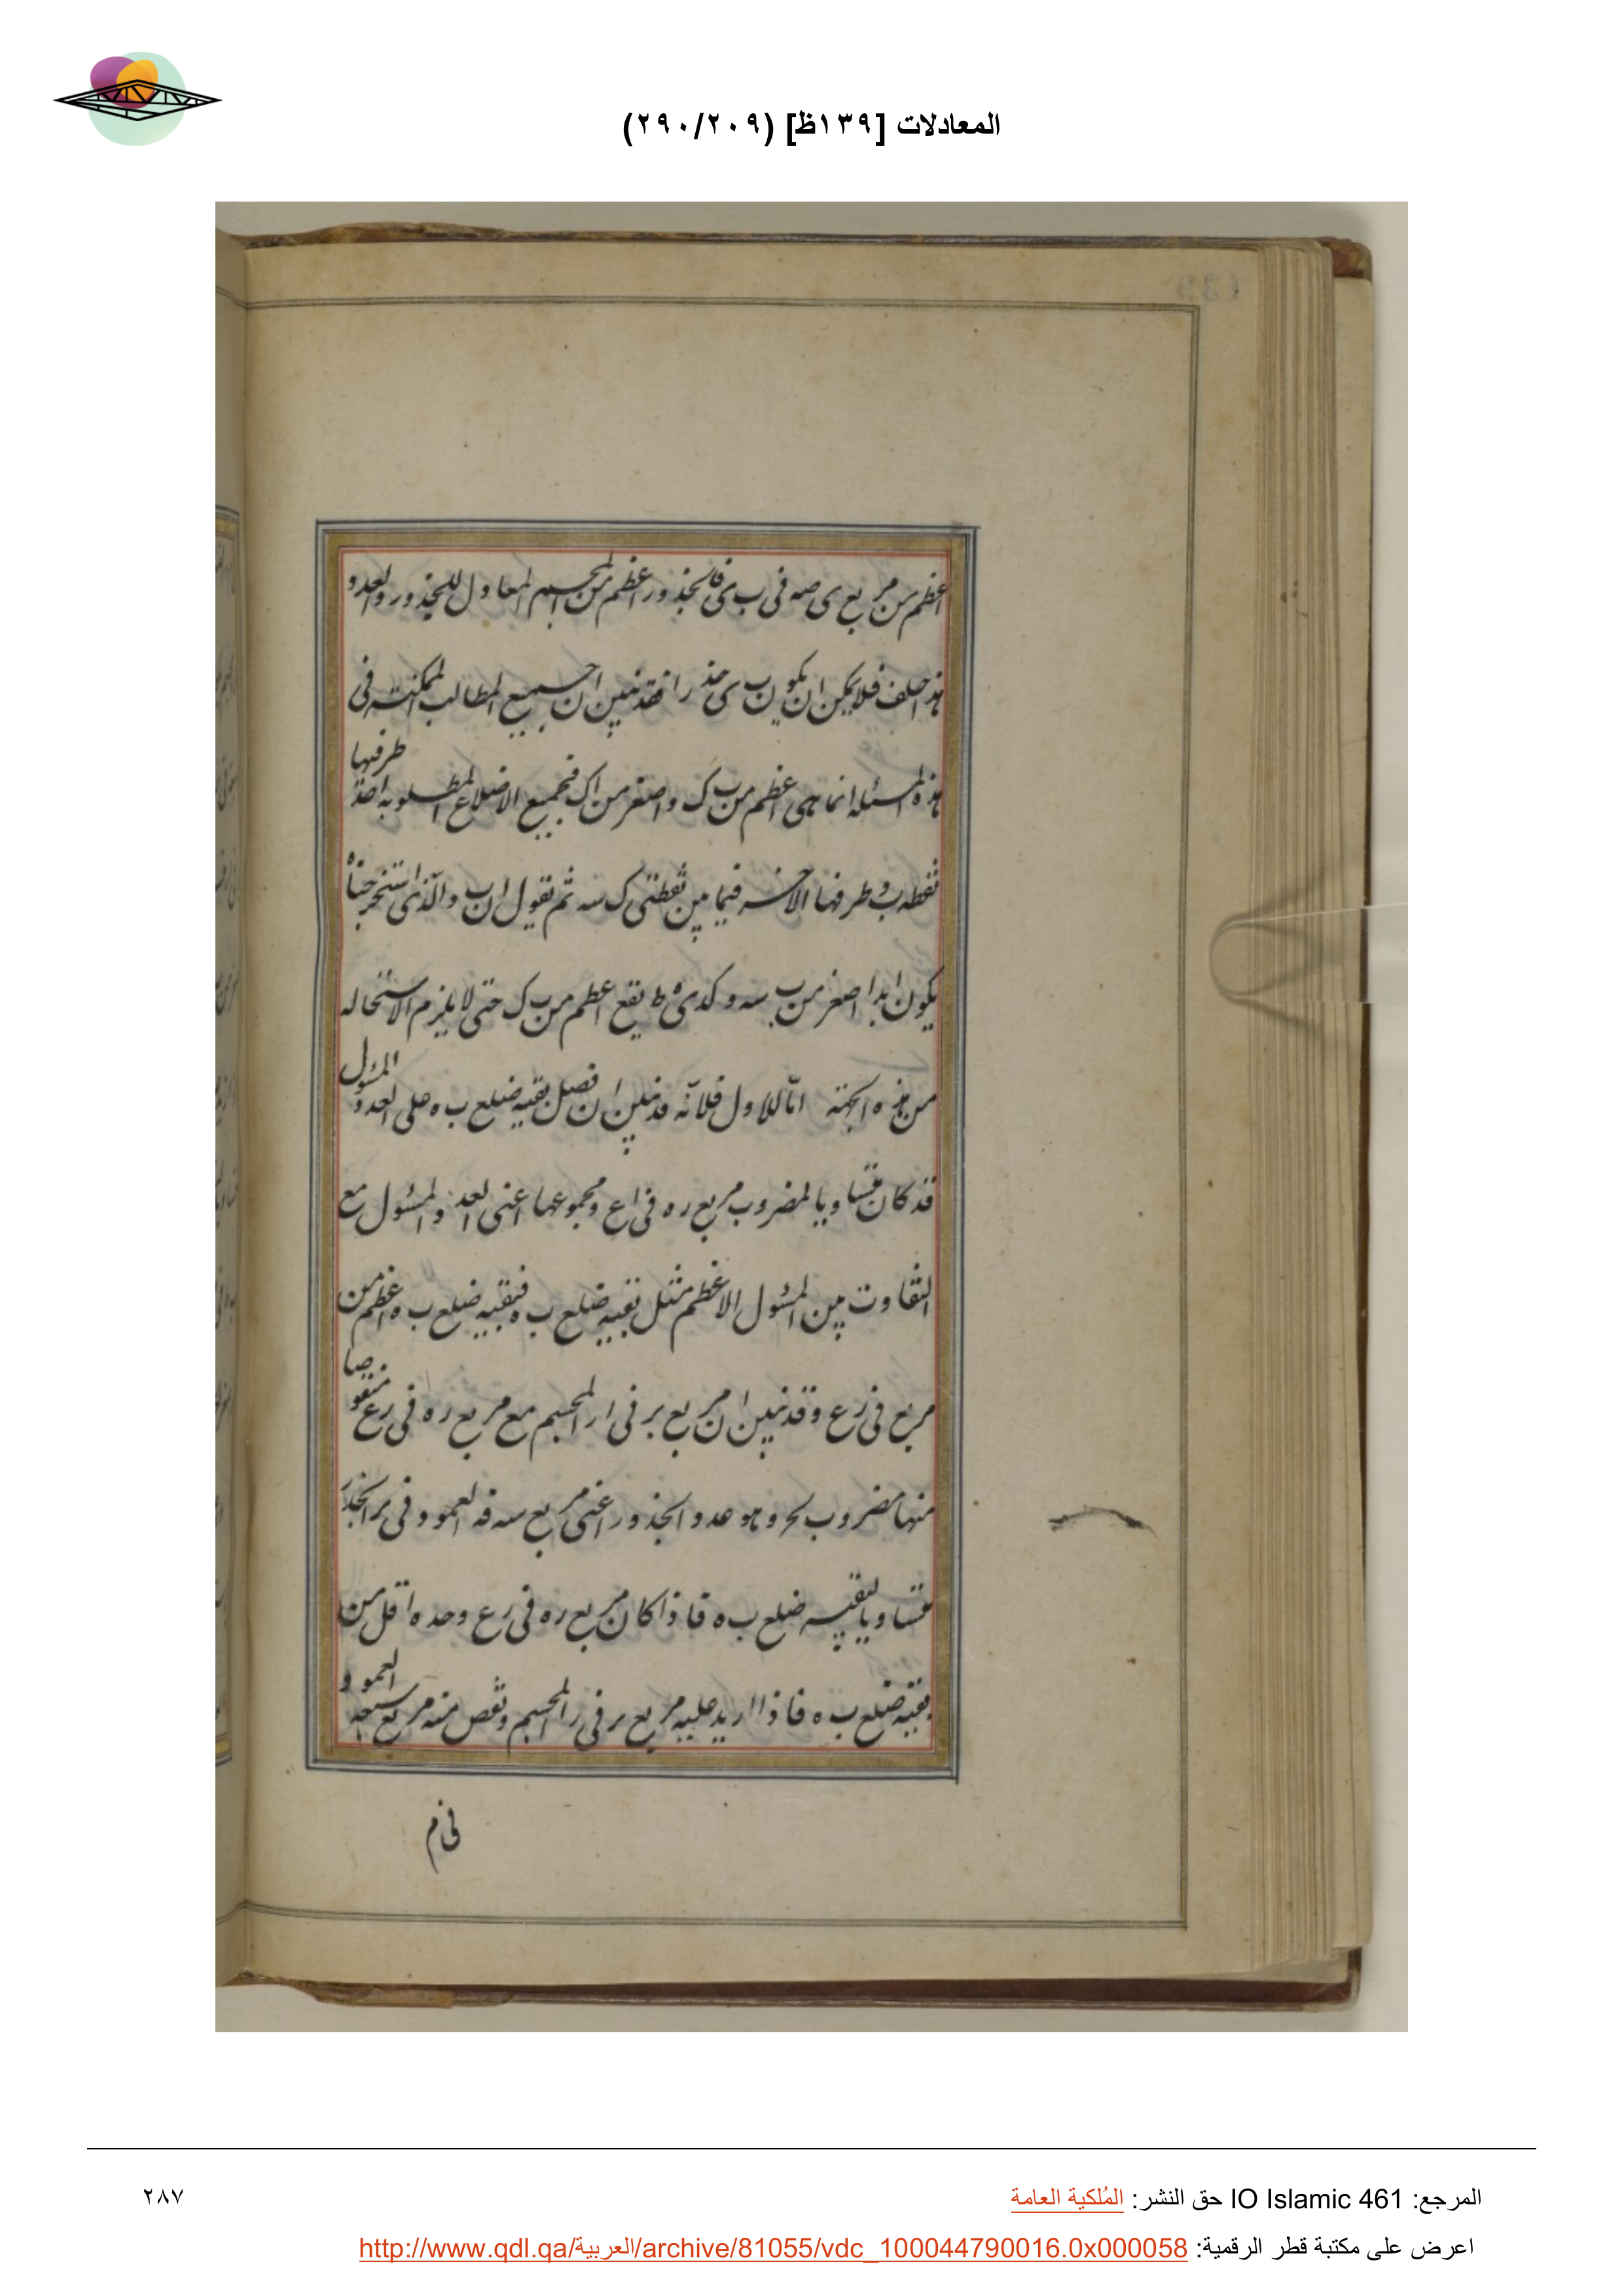 المعادلات [١٣٩ظ] (٢٩٠/٢٠٩)
اعظم من مربع ى صه فى ب ى فالجذور اعظم من المجسم المعاول للجذور والعدد
هذا خلف فلا يمكن ان يكون ب ى جذرا فقد تبين ان جميع المطالب الممكنة فى
هذه المسئله انما هى اعظم من ب ك واصغر من اك فجميع الاضلاع المطلوبه احد طرفيها
نقطه ب وطرفها الاخر فيما بين نقطتى ك سه ثم نقول ان ب والذى استخرجناه
يكون ابدا اصغر من ب سه وكذى ه ط يقع اعظم من ب ك حتى لا يلزم الاستحاله
من هذه الجهة اما للاول فلانه قد تبين ان فصل بقيه ضلع ب ه على العدد المسئول
قد كان متساويا لمضروب مربع ره فى اع ومجموعها اعنى العدد المسئول مع
التفاوت بين المسئول الاعظم مثل بقيه ضلع ب ه فبقيه ضلع ب ه اعظم من
مربع فى رع وقد تبين ان مربع بر فى ار المجسم مع مربع ره فى رع منقوصا
منها مضروب لحر وهو عدد الجذور اعنى مربع سه فه العمود فى بر الجذر
متساويا لبقيه ضلع ب ه فاذا كان مربع ره فى رع وحده اقل من
بقيه ضلع ب ه فاذا اريد عليه مربع بر فى ر المجسم ونقص منه مربع سه العمود
فى م
المرجع: IO Islamic 461 حق النشر: المُلكية العامة
٢٨٧
اعرض على مكتبة قطر الرقمية: http://www.qdl.qa/العربية/archive/81055/vdc_100044790016.0x000058